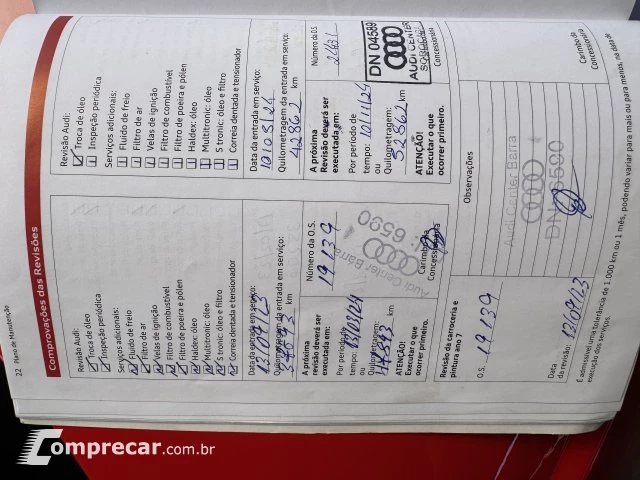 22 Plano de Manutenção
Comprovações das Revisões
Revisão Audi:
Troca de óleo
Inspeção periódica
Serviços adicionais:
Fluido de freio
Filtro de ar
Velas de ignição
Filtro de combustível
Filtro de poeira e pólen
Haldex: óleo
Multitronic: óleo
S tronic: óleo e filtro
Correia dentada e tensionador
Data da entrada em serviço:
13/09/23
Quilometragem da entrada em serviço:
km
A próxima
revisão deverá ser
executada em:
Por período de
tempo: 13/03/24
ou
Quilometragem:
km
ATENÇÃO!
Executar o que
ocorrer primeiro.
Número da O.S.
19139
Audi Center Barra
6590
Carimbo da
Concessionária
Revisão Audi:
Troca de óleo
Inspeção periódica
Serviços adicionais:
Fluido de freio
Filtro de ar
Velas de ignição
Filtro de combustível
Filtro de poeira e pólen
Haldex: óleo
Multitronic: óleo
S tronic: óleo e filtro
Correia dentada e tensionador
Data da entrada em serviço:
Quilometragem da entrada em serviço:
42862 km
A próxima
Revisão deverá ser
executada em:
Por período de
tempo: 10/11/24
ou
Quilometragem:
52862 km
ATENÇÃO!
Executar o que
ocorrer primeiro.
Número da O.S.
DN 04589
AUDI CENTER
Carimbo da
Concessionária
Revisão da carroceria e
pintura ano 7
O.S. 19139
Data
da revisão: 13/09/23
Observações
Audi Center Barra
DN 6590
É admissível uma tolerância de 1.000 km ou 1 mês, podendo variar para mais ou para menos, na data de
execução dos serviços.
Comprecar.com.br